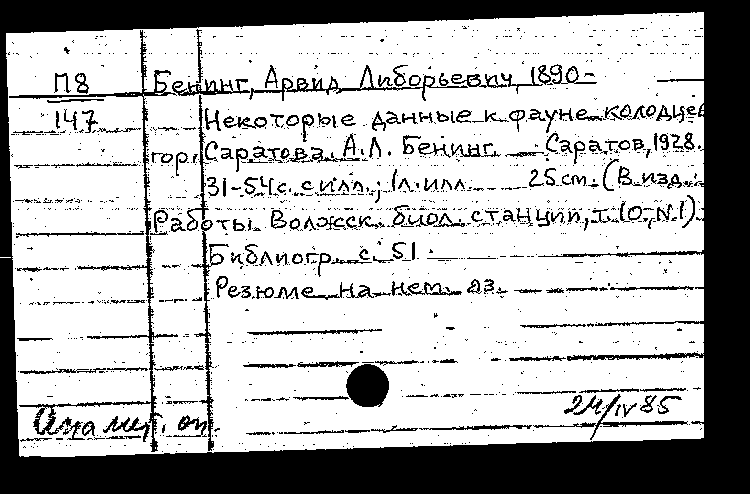 П8 Бенинг, Арвид Либорьевич, 1890-
147 Некоторые данные к фауне колодцев
гор. Саратова. А.Л. Бенинг. — Саратов, 1928.
31-54 с. с илл.; 1 л. илл. 25 cm. (В изд.:
Работы Волжск. биол. станции, т. 10, № 1).
Библиогр. с. 51.
Резюме на нем. яз.
24/IV 85